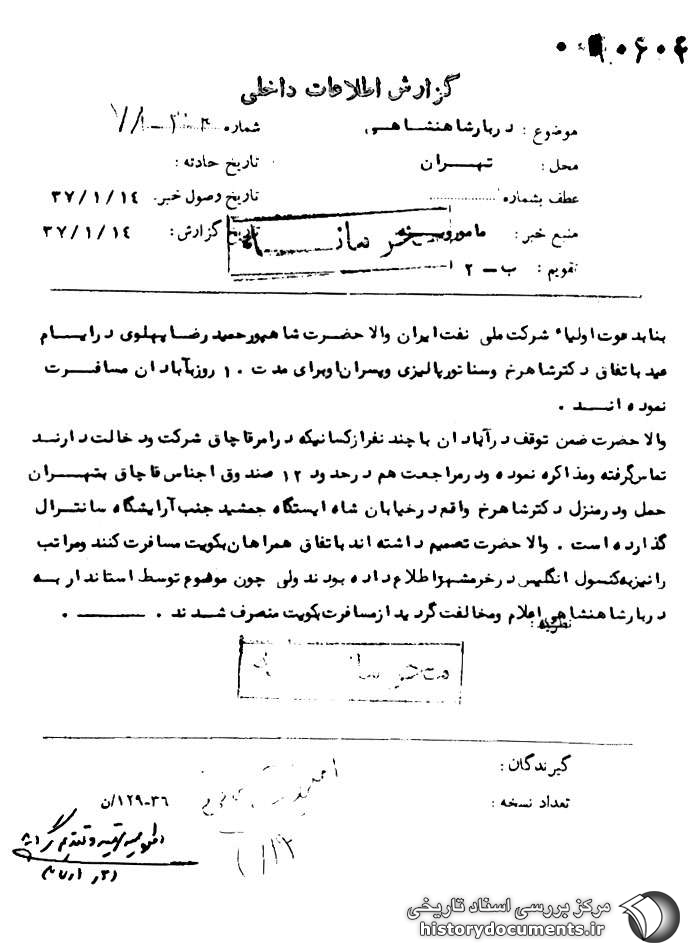 ۰۹۰۶۰۴
گزارش اطلاعات داخلی
موضوع : دربارشاهنشاهی
شماره
محل : تهران
تاریخ حادثه :
عطف بشماره
تاریخ وصول خبر: ۳۷/۱/۱۴
منبع خبر : مامور
تاریخ گزارش : ۳۷/۱/۱۴
تقویم : ب – ۲
بنابدعوت اولیاء شرکت ملی نفت ایران والا حضرت شاهپورحمید رضا پهلوی درایام
عید باتفاق دکترشاهرخ وسناتورپالیزی وپسران اوبرای مدت ۱۰ روزبآبادان مسافرت
نموده انـــد .
والا حضرت ضمن توقف درآبادان باچند نفرازکسانیکه درامرقاچاق شرکت ودخالت دارند
تماس گرفته ومذاکره نموده ودرمراجعت هم درحدود ۱۲ صندوق اجناس قاچاق بتهران
حمل ودرمنزل دکترشاهرخ واقع درخیابان شاه ایستگاه جمشید جنب آرایشگاه سانترال
گذارده است . والا حضرت تصمیم داشته اند باتفاق همراهان بکویت مسافرت کنند ومراتب
رانیزبه کنسول انگلیس درخرمشهراطلاع داده بودند ولی چون موضوع توسط استاندار به
دربارشاهنشاهی اعلام ومخالفت گردید ازمسافرت بکویت منصرف شدند .
نظریه :
گیرندگان :
تعداد نسخه :
۱۲۹-۳۶/ن
مرکز بررسی اسناد تاریخی
historydocuments.ir